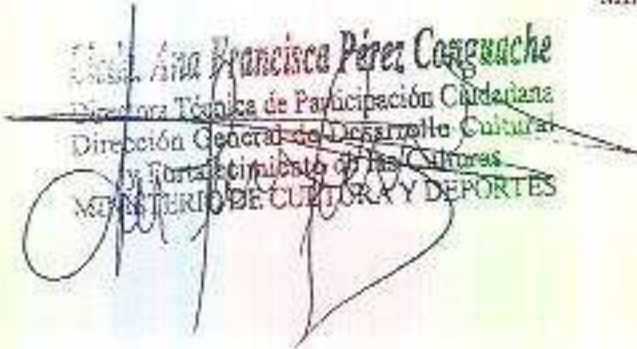 Licda. Ana Francisca Pérez Conguache
Directora Técnica de Participación Ciudadana
Dirección General de Desarrollo Cultural
y Fortalecimiento de las Culturas
MINISTERIO DE CULTURA Y DEPORTES